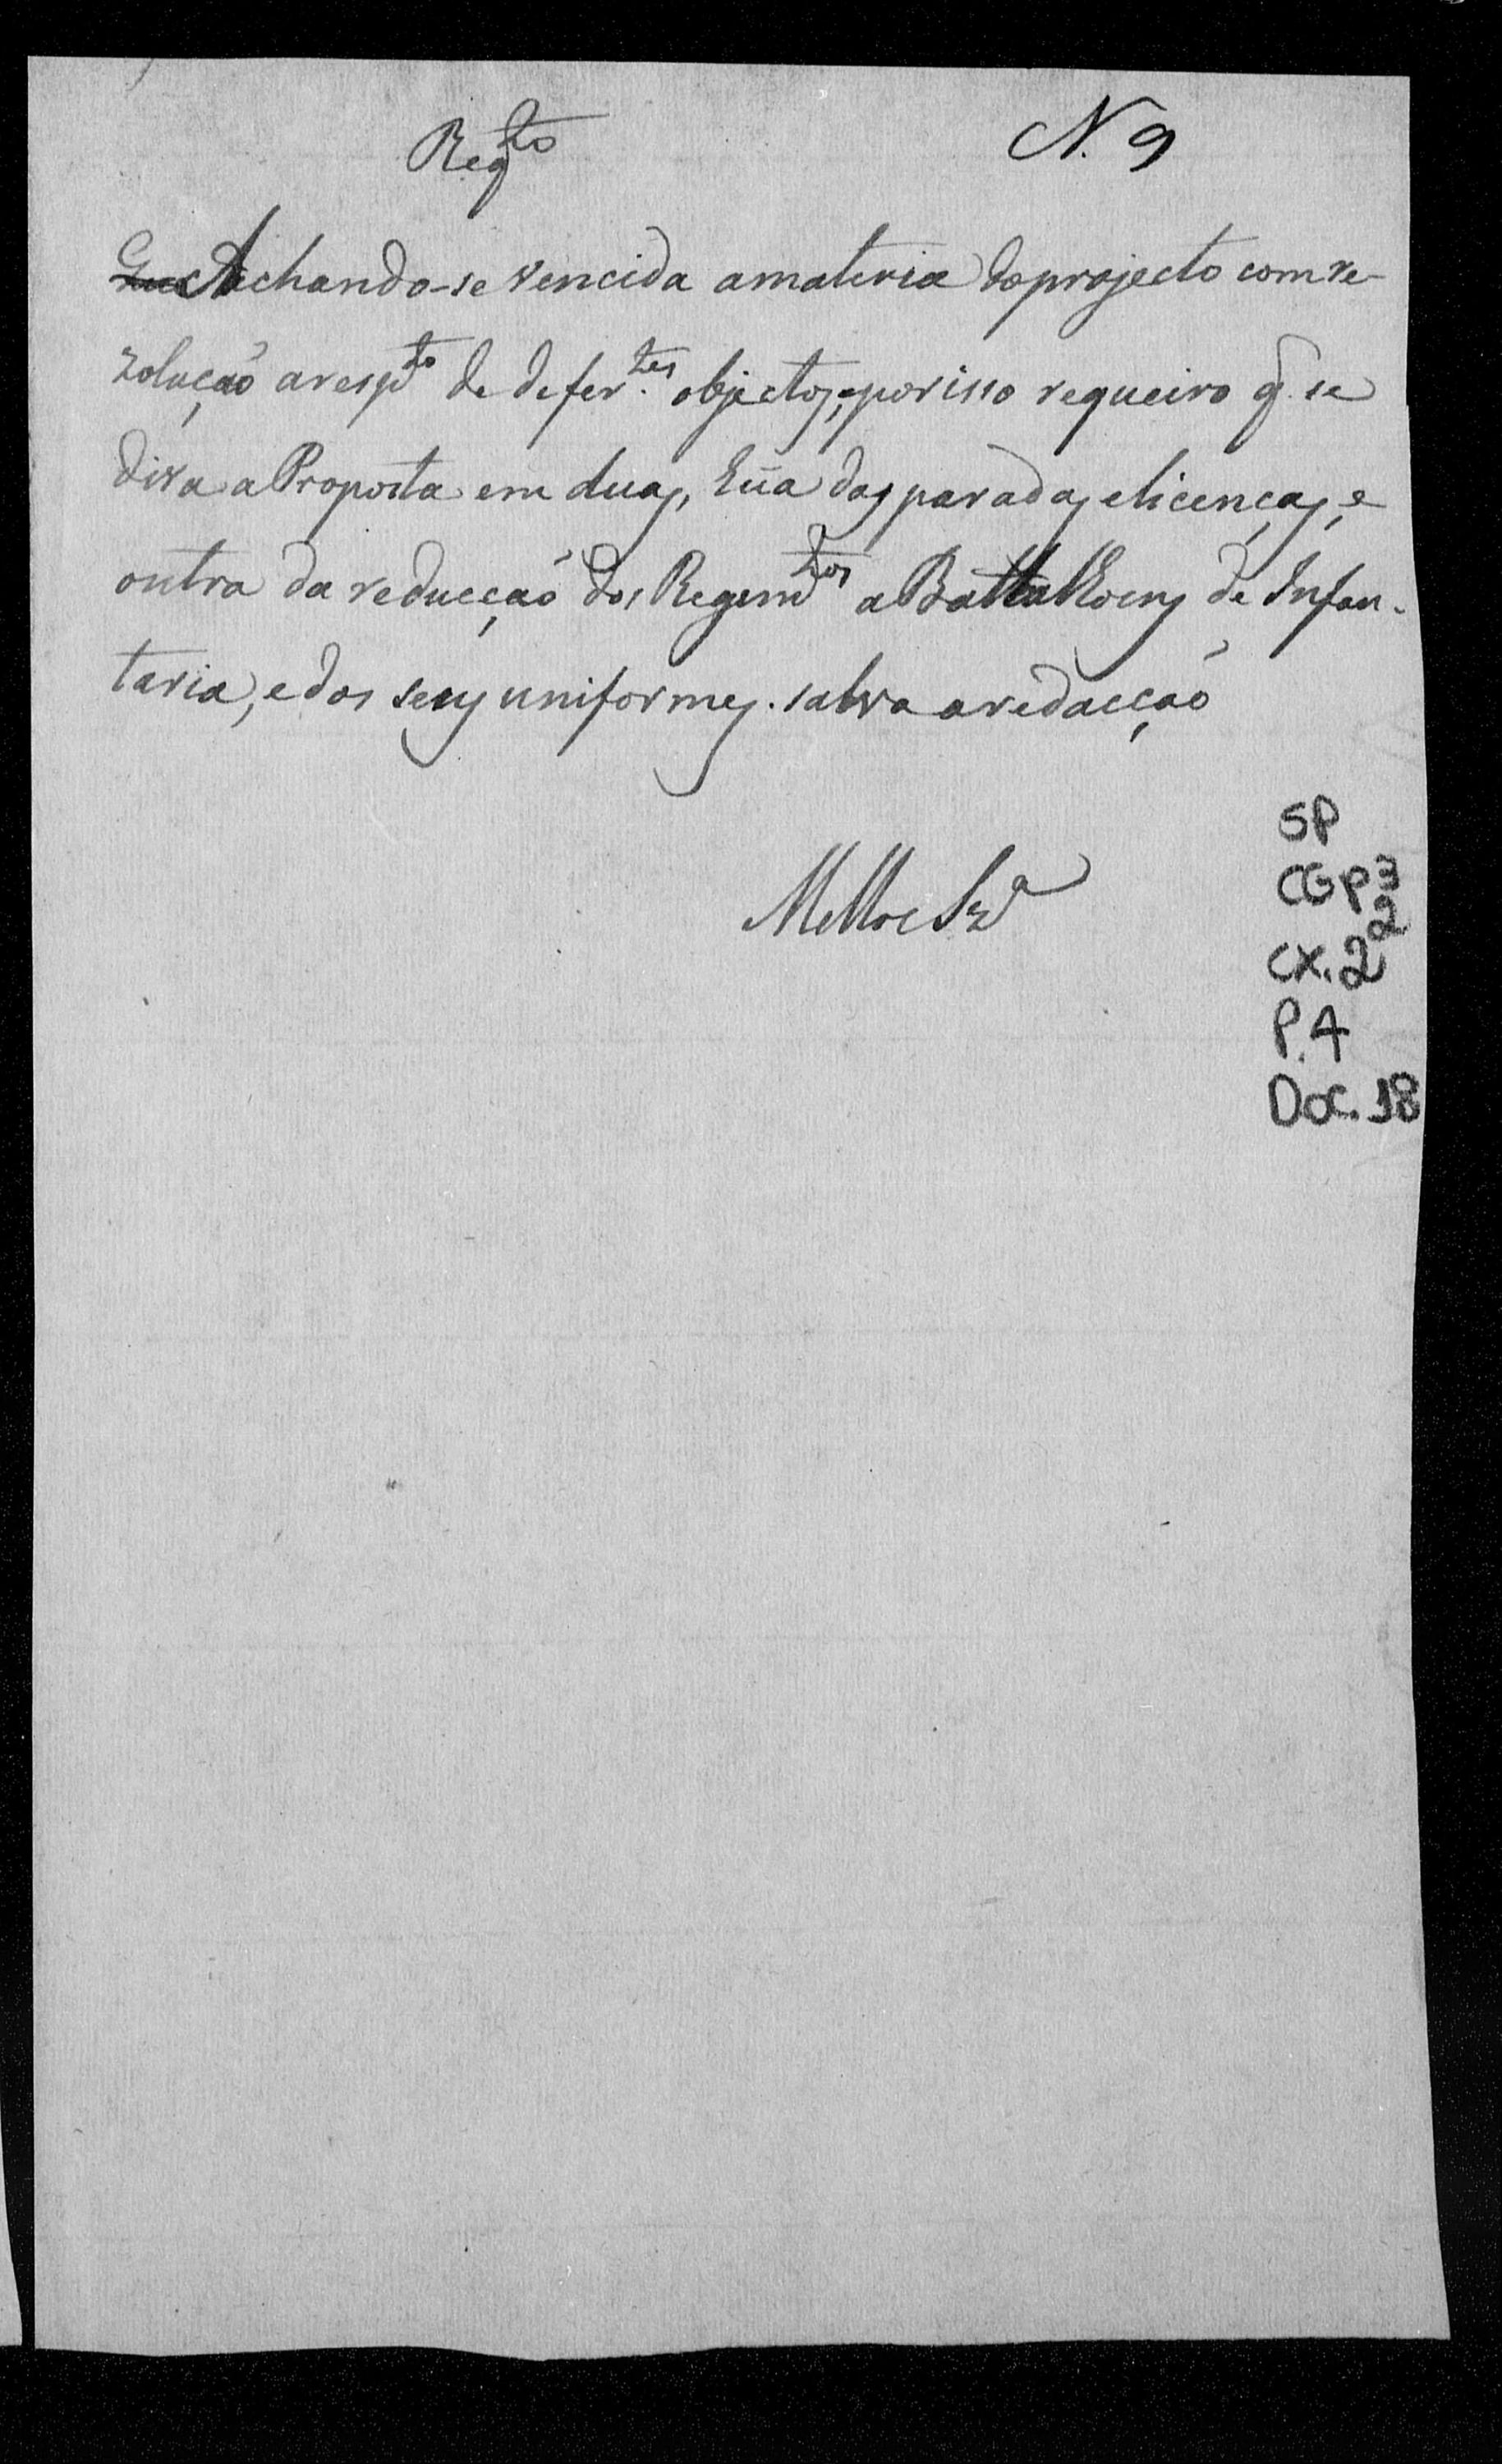 Reqto
N. 9
Que Achando-se vencida a materia do projecto com re-
zoluçaõ a respto de defertes objectos, e por isso requeiro q̃. se
diva a Proposta em duas, hũa das paradas e licenças, e
outra da reducçaõ dos Regemtos a Batalhoens de Infan-
taria, e dos seus uniformes. salva a redacçaõ
Mello e Sza
SP
CGP3
2
CX. 2
P. 4
Doc. 18